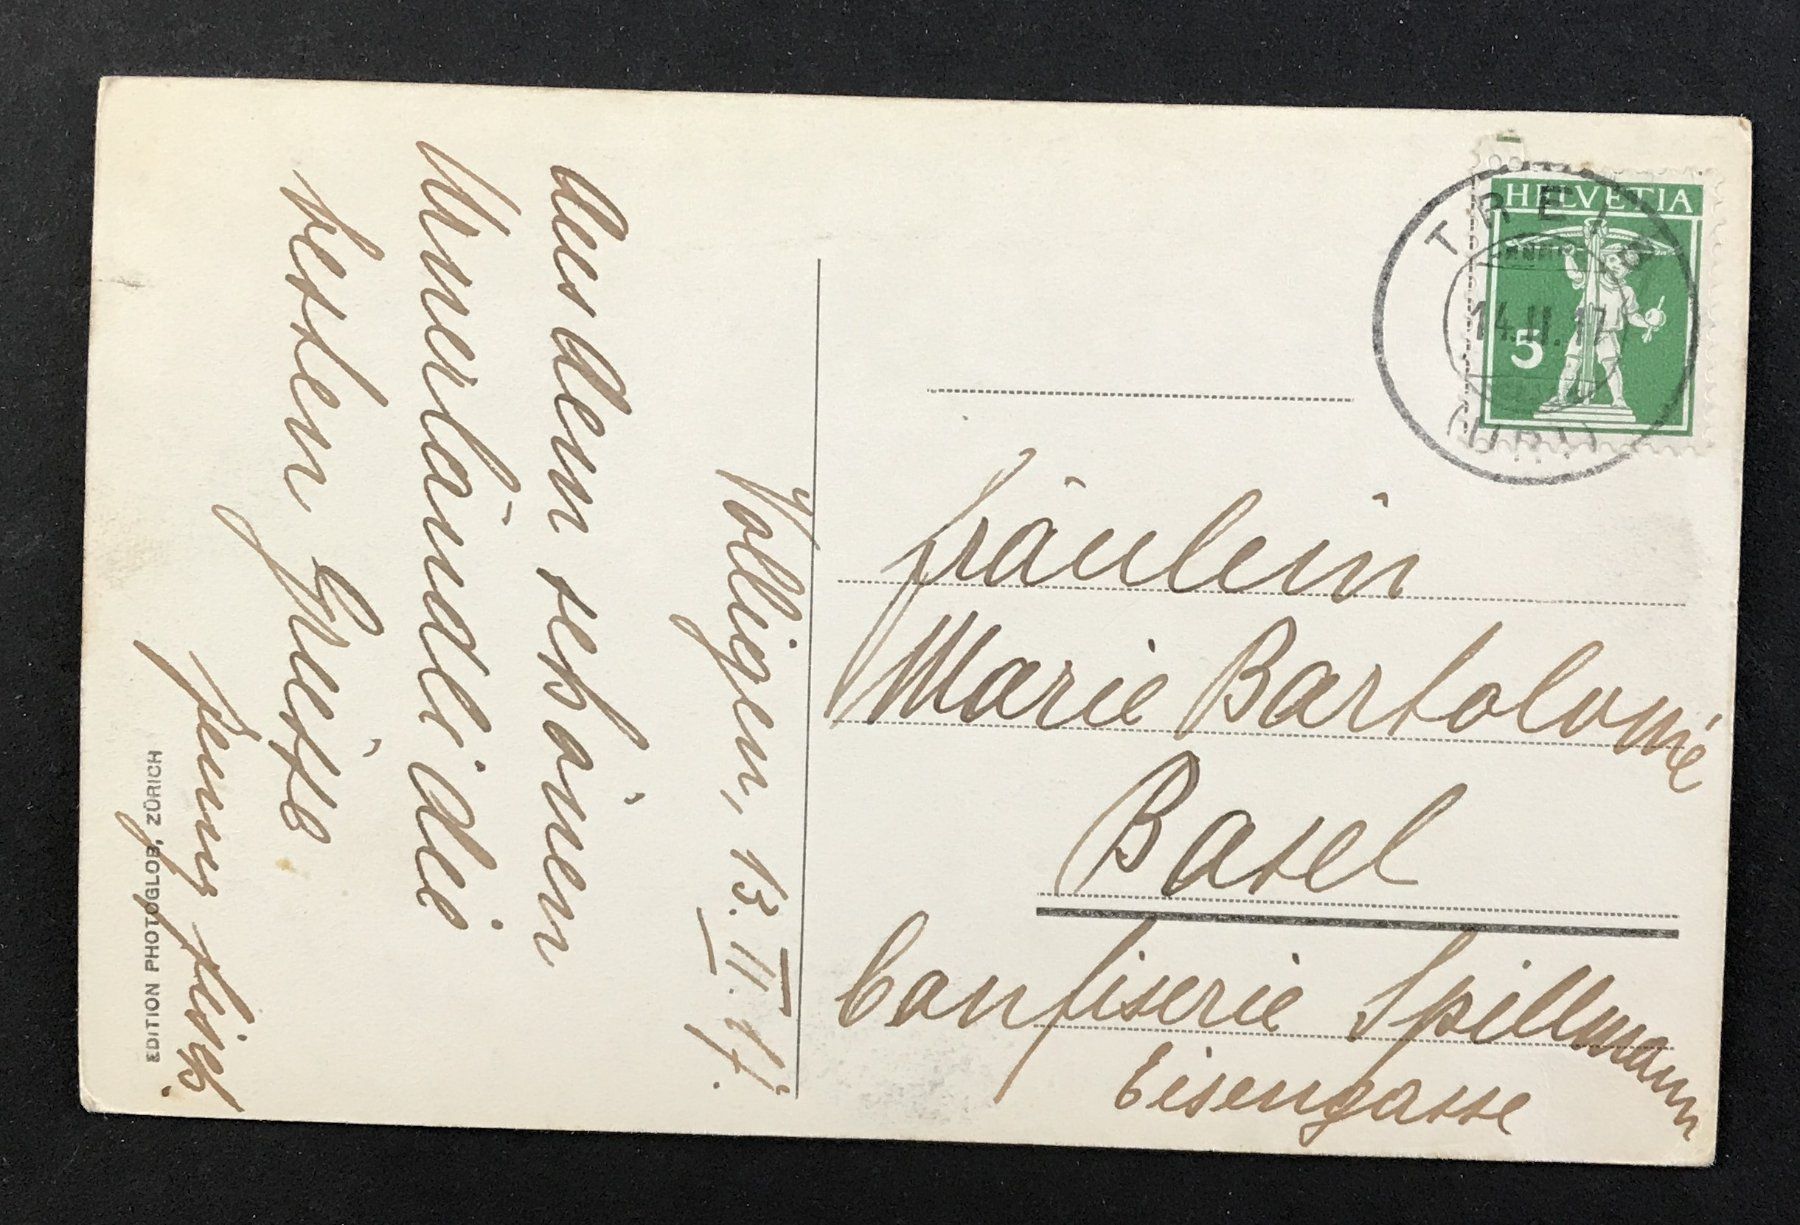 Volligen, 13. II. 17.
Aus dem schönen
Urnerländli die
besten Grüsse
HELVETIA
5
14.II.17
(URI)
Fräulein
Marie Bartolomé
Basel
Confiserie Spillmann
Eisengasse
EDITION PHOTOGLOB, ZÜRICH